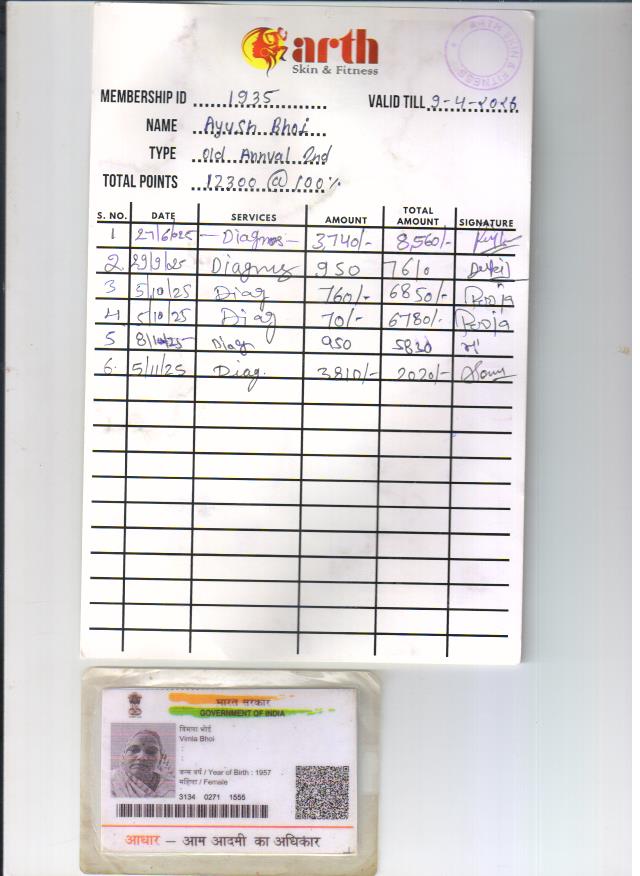 arth
Skin & Fitness
ARTH SKIN & FITNESS
MEMBERSHIP ID 1935
VALID TILL 9-4-2026
NAME Ayush Bhoi
TYPE Old Annual 2nd
TOTAL POINTS 12300 @ 100%
S. NO. DATE SERVICES AMOUNT TOTAL AMOUNT SIGNATURE
1 27/6/25 - Diagnos - 3,740/- 8,560/-
2 29/9/25 Diagnos 950 7610
3 5/10/25 Diag 760/- 6850/-
4 5/10/25 Diag 70/- 6780/-
5 8/10/25 Diag 950 5830
6. 5/11/25 Diag. 3810/- 2020/-
भारत सरकार
GOVERNMENT OF INDIA
विमला भोई
Vimla Bhoi
जन्म वर्ष / Year of Birth : 1957
महिला / Female
3134 0271 1555
आधार – आम आदमी का अधिकार